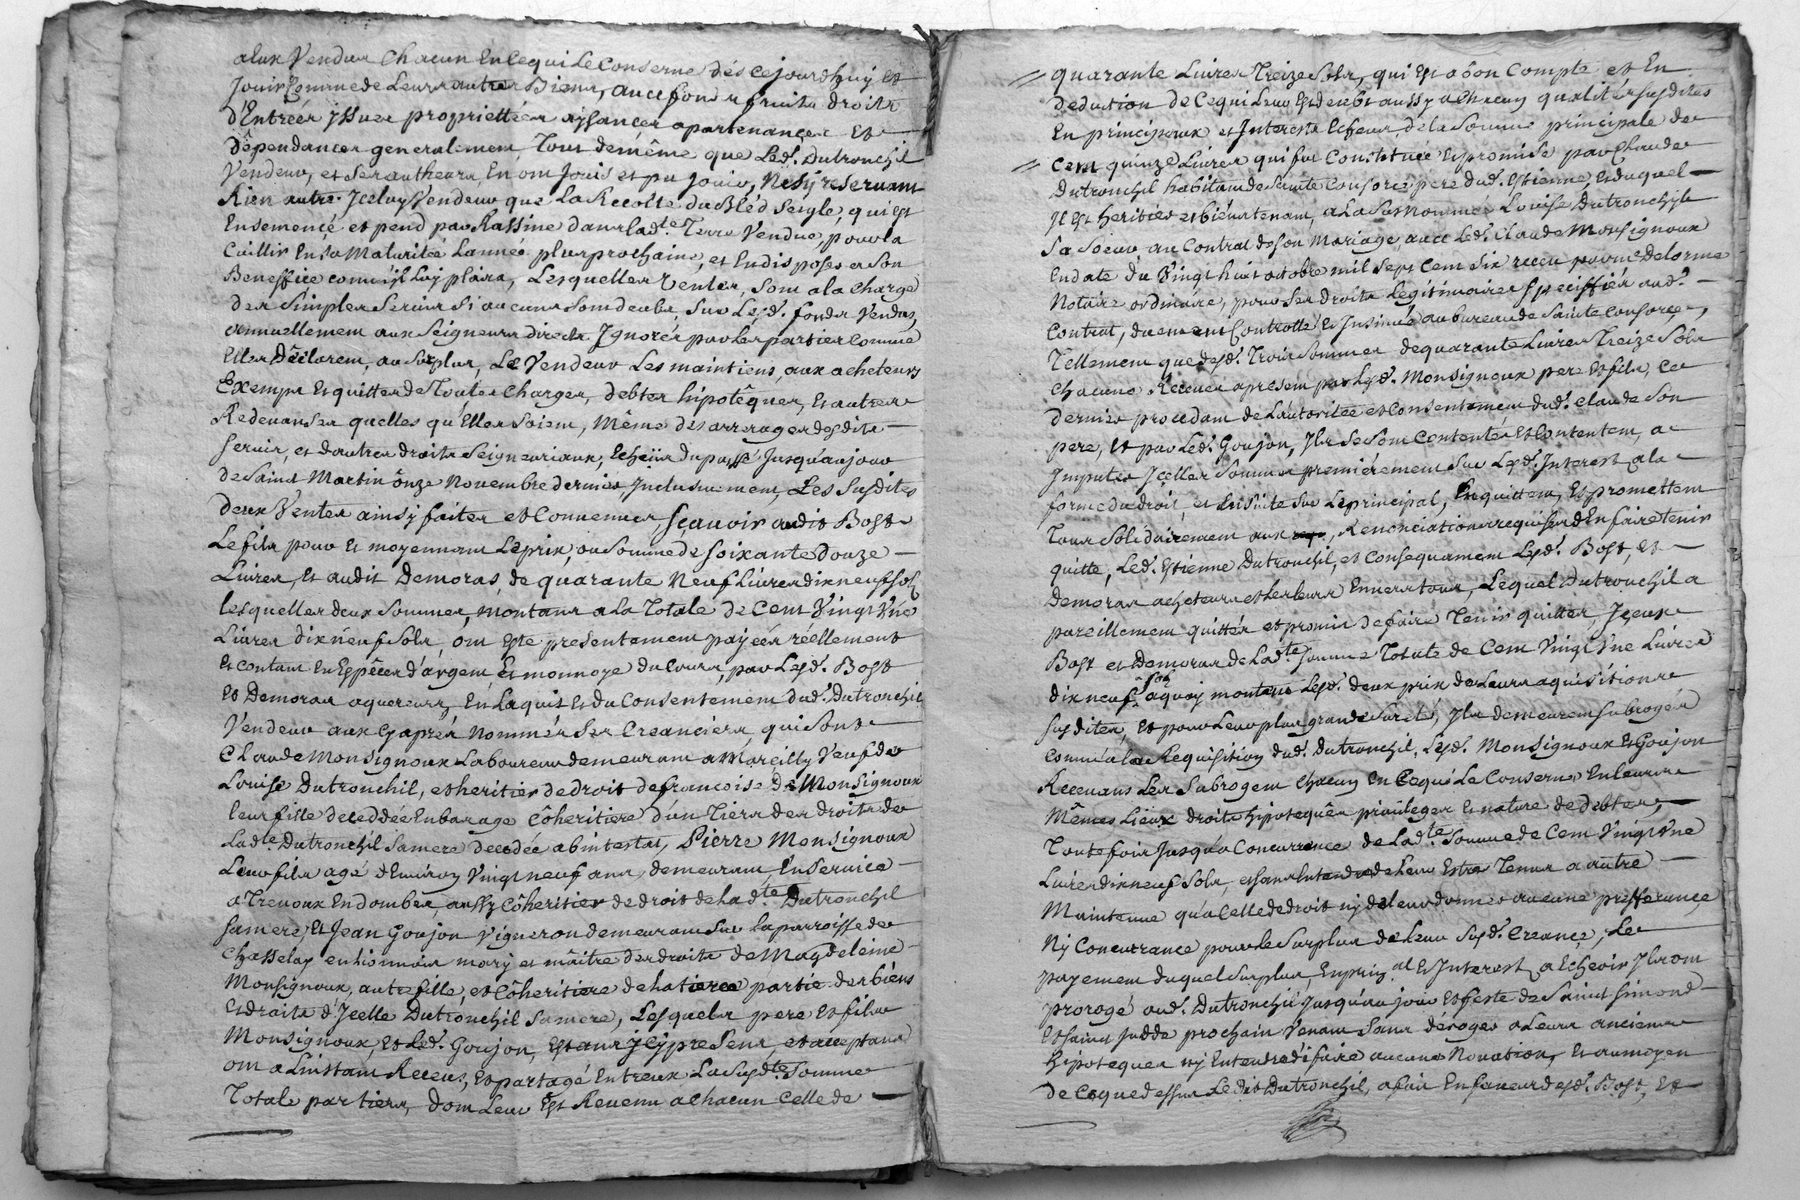 a eux Vendus Chacun En Ce qui Le Conserne dés Cejourdhuy et
Jouir Comme de Leurs autres Biens, avec fonds fruits droits
d'Entrées yssues proprietées aysances apartenances Et
Dêpendances generalement, Tout de même que Led. Dutronchil
Vendeur, et ses autheurs, En ont Jouis et pu Jouir, Ne s'y reservant
Rien autre Jceluy Vendeur que La Recolte du Bled Seigle, qui Est
Ensemencé et pend par Rassine dans lad.te Terre Vendue, pour la
Cuillir En sa Maturitée Lannée plus prochaine, et En disposer a Son
Beneffice comm'il Luy plaira, Lesquelles Ventes, Sont a la Charge
des Simples Servis Si aucuns Sont deubs, Sur Lesd. fonds Vendus,
annuellement aux Seigneurs directs Jgnorés par Les parties Comme
Elles Dêclarent, au Surplus, Le Vendeur Les maintiens, aux acheteurs
Exempt Et quittes de Toutes Charges, debtes hipotêques, Et autres
Redevanses quelles qu'Elles Soient, Même des arrerages desdits
Servis, et d'autres droits Seigneuriaux, Echeüs du passé Jusqu'au jour
de Saint Martin ônze Novembre dernier, Jnclusivement, Les Susdites
deux Ventes ainsy faites et Convenues Sçavoir audit Bost
Le fils pour Et moyennant Le prix, ou Somme de Soixante Douze
Livres, Et audit Demoras, de quarante Neuf Livres dix neuf Sols
lesquelles deux Sommes, montant a La Totale de Cent Vingt Une
Livres dix neuf Sols, ont Este presentement payées réellement
Et contant En Espêces d'argent, Et monnoye du Cours, par Lesd. Bost
Et Demoras aquereurs, En L'aquis Et du Consentement dud. Dutronchil
Vendeur aux Cyaprés Nommés Ses Creanciers, qui Sont
Claude Monsignoux Laboureur demeurant a Marcilly Veuf de
Louise Dutronchil, et heritier de droit de francoise De Monsignoux
leur fille decedée En bas age Côheritiere d'un Tiers des droits de
Lad.te Dutronchil Sa mere decedée abintestat, Pierre Monsignoux
Leur fils agé d'Environ Vingt neuf ans, demeurant En Service
a Trevoux En dombes, aussy Côheritier de droit de lad.te Dutronchil
Sa mere, Et Jean Goujon Vigneron demeurant Sur La parroisse de
Chasselay en Lionnois mary et mâitre des droits de Magdeleine
Monsignoux, autre fille, et Côheritiere de la tierce partie des biens
Et droits d'Jcelle Dutronchil Sa mere, Lesquels pere Et fils
Monsignoux, Et Led. Goujon, Estans Jcy presens, et acceptans
ont a L'instant Receus, Et partagé Entreux La Susd.te Somme
Totale par tiers, dont Leur Est Revenu a Chacun Celle de
quarante Livres Treize Sols, qui Est a Bon Compte et En
deduction de Ce qui Leur Est deubt aussy a Chacun qualités susdites
En principaux et Jnterests Echeus, de la Somme principale de
Cent quinze Livres qui fut Constituée Et promise par Claude
Dutronchil habitant de Sainte Consorce, pere dud. Estienne, Et duquel
Jl Est heritier et biéntenant, a La Surnommée Louise Dutronchil
Sa Soeur, au Contrat de Son Mariage avec Led. Claude Monsignoux
En date du Vingt huit octobre mil Sept Cent Six receu par me Delorme
Notaire ordinaire, pour Ses droits Legitimaires Speciffiés aud.
Contrat, duement Controllé Et Jnsinué au bureau de Sainte Consorce,
Tellement que desd. Trois Sommes de quarante Livres Treize Sols
Chacune Receues a present par Lesd. Monsignoux pere Et fils, Ce
dernier procedant de L'autoritée et Consentement dud. Claude Son
pere, Et par Led. Goujon, Jls Se Sont Contentés Et Contentent, a
Jmputer Jcelles Sommes premiérement Sur Lesd. Jnterest a la
forme du droit, et En Suite Sur Le principal, En quittent, Et promettent
Tous Sólidairement aux, Renonciations requises d'En faire Tenir
quitte, Led. Estienne Dutronchil, et Consequament Lesd. Bost, Et
Demoras acheteurs et les leurs Envers tous, Lequel Dutronchil a
pareillement quittés et promis de faire Tenir quittes, Jceux
Bost et Demoras de Lad.te Somme Totale de Cent Vingt Une Livres
dix neuf Sols aquoy montent Lesd. deux prix de Leurs aquisitions
Susdites, Et pour Leur plus grande Sureté, Jls demeurent Subrogés
Comm'a la Requisition dud. Dutronchil, Lesd. Monsignoux Et Goujon
Recevans Les Subrogent Chacun En Cequi Le Conserne, En Leurs
Mêmes Lieux droits hipoteques priviléges Et nature de debtes,
Toutefois Jusqu'a Concurrence de Lad.te Somme de Cent Vingt Une
Livres dix neuf Sols, et Sans Entendre de Leur Estre Tenus a autre
Maintenue qu'a Celle de droit ny de leur donner aucune prefferance
Ny Concurrance pour le Surplus de Leur Susd. Creance, Le
payement duquel Surplus, En prin.al Et Jnterest a Echeoir Jls ont
prorogé aud. Dutronchil Jusqu'au jour Et feste de Saint Simond
Et Saint Judde prochain Venant Sans déroger a Leurs anciennes
hipoteques ny Entendre d'y faire aucune Novation, Et au moyen
de Ce que dessus Le dit Dutronchil, a fait En faveur desd. Bost, Et